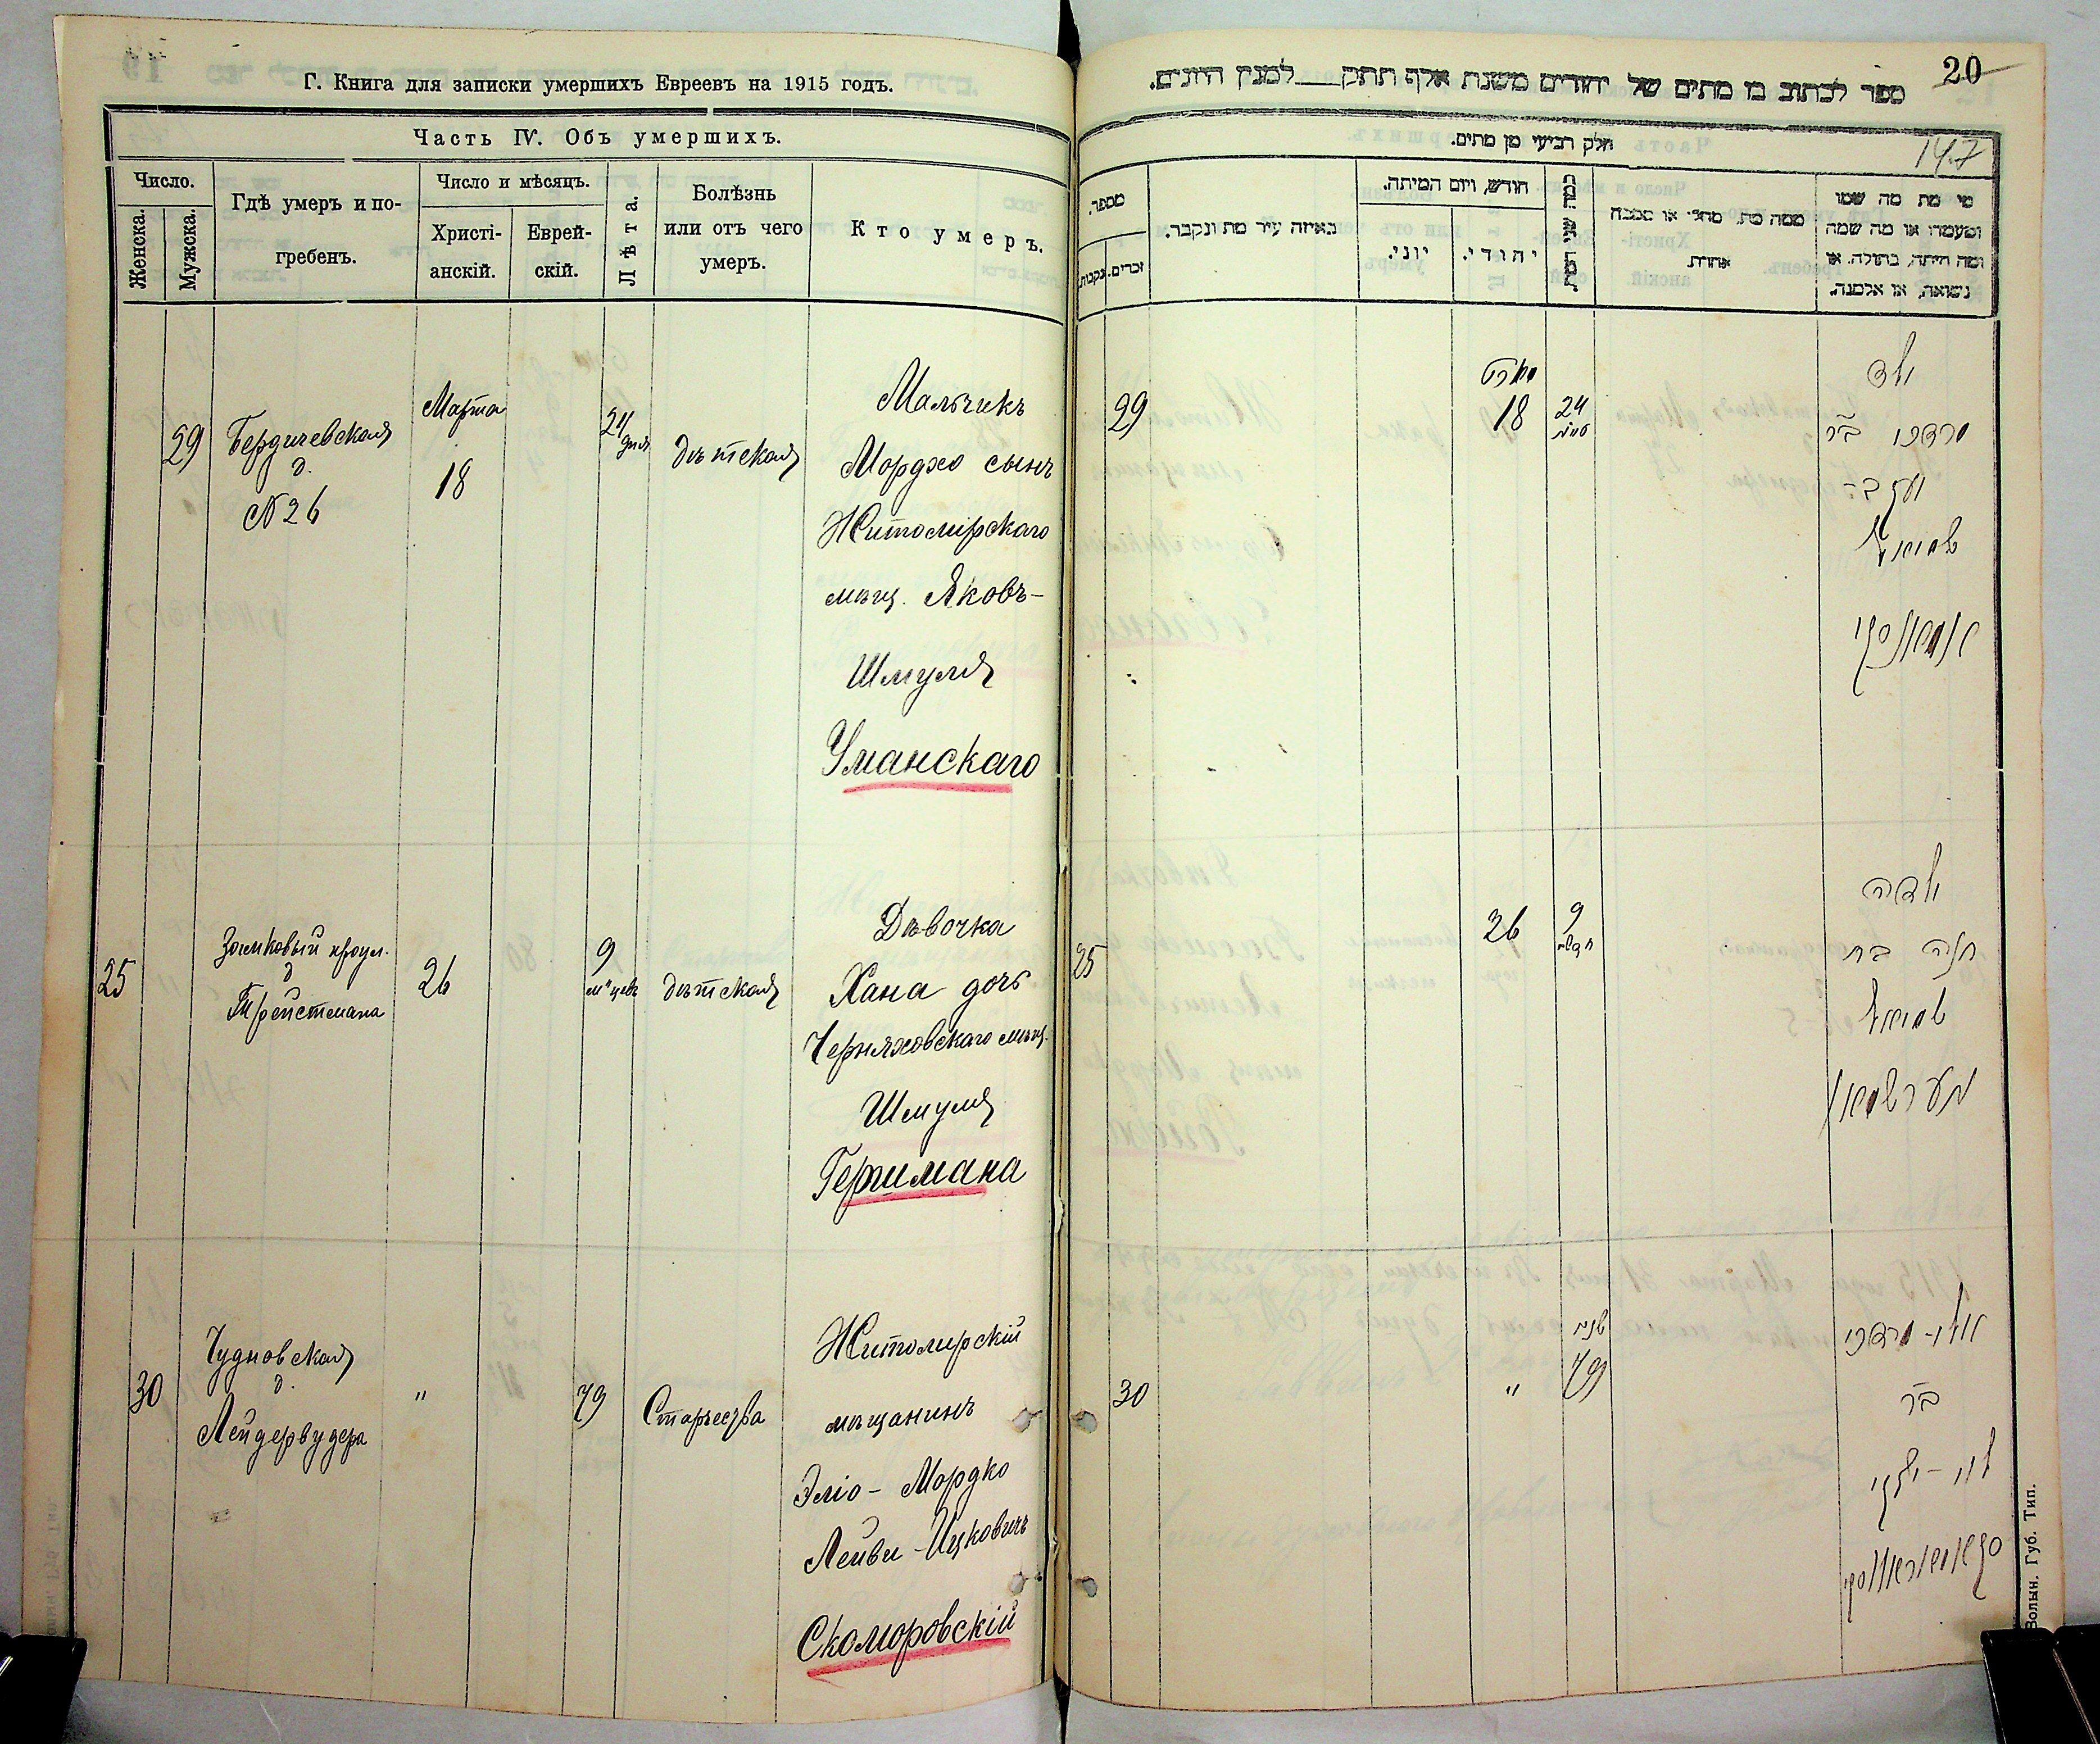 Г. Книга для записки умершихъ Евреевъ на 1915 годъ.
Часть IV. Объ умершихъ.
Число.
Женска.
Мужска.
Гдѣ умеръ и по-
гребенъ.
Число и мѣсяцъ.
Христі-
анскій.
Еврей-
скій.
Лѣта.
Болѣзнь
или отъ чего
умеръ.
Кто умеръ.
29
Бердичевская
д.
№ 26
Марта
18
24
дня
дѣтская
Мальчикъ
Мордхо сынъ
Житомірскаго
мѣщ. Яковъ-
Шмуля
Уманскаго
25
Замковый проул.
д
Трейстмана
26
9
м-цевъ
дѣтская
Дѣвочка
Хана дочь
Черняховскаго мѣщ.
Шмуля
Гершмана
30
Чудновская
д.
Лейдервудера
"
79
Старчества
Житомирскій
мѣщанинъ
Эліо-Мордко
Лейви-Ицковичъ
Скоморовскій
20
ספר לכתוב בו מתים של יהודים משנת אלף תתק למנין היונים.
147
חלק רביעי מן מתים.
מספר.
נקבות.
זכרים.
באיזה עיר מת ונקבר.
חודש, ויום המיתה.
יוני.
יהודי.
כמה שני המת
ממה מת. מחלי או מסבה
אחרת.
מי מת מה שמו
ומעמדו או מה שמה
ומה היתה, בתולה. או
נשואה, או אלמנה.
29
מארט
18
24
ילד
מרדכי ב״ר
יעקב-
שמואל
אומאנסקי
25
26
9
חדשים
ילדה
חנה בת
שמואל
הערשמאן
30
"
שנים
79
אלי-מרדכי
ב״ר
לוי-יצחק
סקאמאראווסקי
Волын. Губ. Тип.